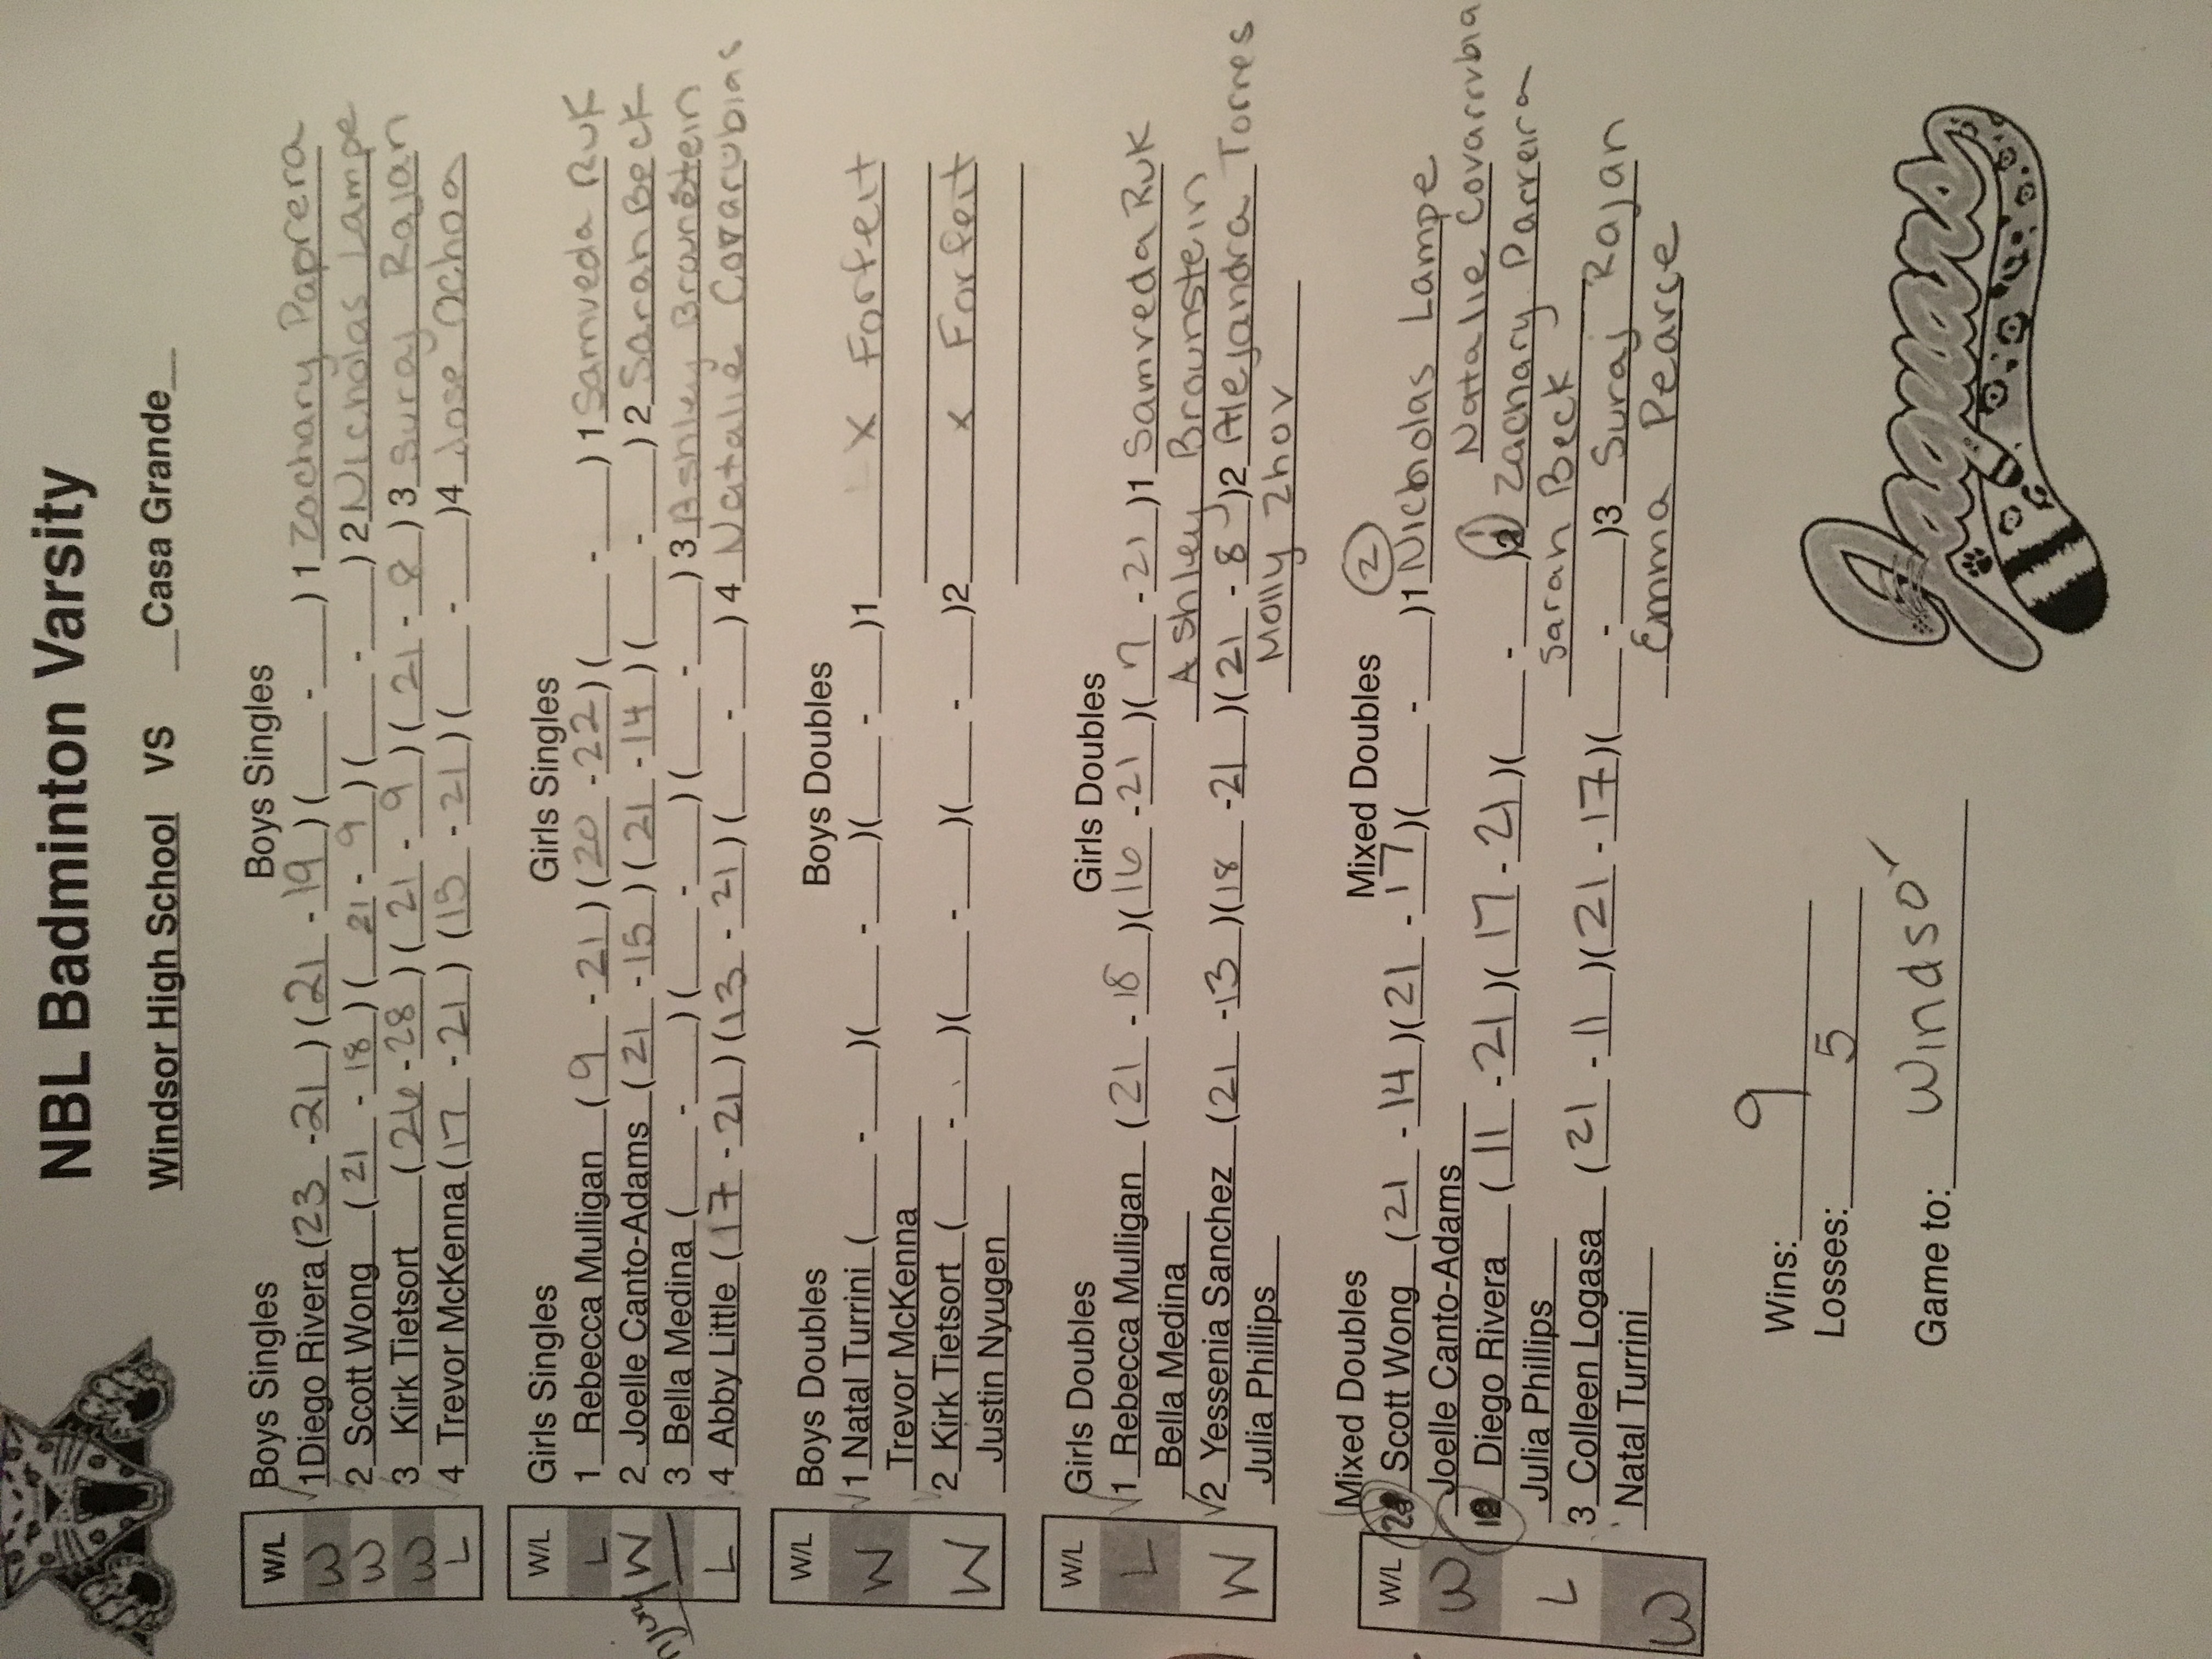 NBL Badminton Varsity
Windsor High School VS _Casa Grande_
Boys Singles Boys Singles
W/L
W √1Diego Rivera (23 - 21) (21 - 19) (___ - ___) 1 Zachary Paprera
W 2 Scott Wong (21 - 18) (21 - 9) (___ - ___) 2 Nicholas Lampe
W 3 Kirk Tietsort (26 - 28) (21 - 9) (21 - 8) 3 Suraj Rajan
L 4 Trevor McKenna (17 - 21) (15 - 21) (___ - ___) 4 Jose Ochoa
Girls Singles Girls Singles
W/L
L 1 Rebecca Mulligan (9 - 21) (20 - 22) (___ - ___) 1 Samveda Ruk
W 2 Joelle Canto-Adams (21 - 15) (21 - 14) (___ - ___) 2 Sarah Beck
3 Bella Medina (___ - ___) (___ - ___) (___ - ___) 3 Ashley Braunstein
L 4 Abby Little (17 - 21) (13 - 21) (___ - ___) 4 Natalie Covarubias
Boys Doubles Boys Doubles
W/L
W √1 Natal Turrini (___ - ___) (___ - ___) (___ - ___) 1 X Forfeit
Trevor McKenna
W 2 Kirk Tietsort (___ - ___) (___ - ___) (___ - ___) 2 X Forfeit
Justin Nyugen
Girls Doubles Girls Doubles
W/L
L √1 Rebecca Mulligan (21 - 18) (16 - 21) (7 - 21) 1 Samveda Ruk
Bella Medina Ashley Braunstein
W √2 Yessenia Sanchez (21 - 13) (18 - 21) (21 - 8) 2 Alejandra Torres
Julia Phillips Molly Zhou
Mixed Doubles Mixed Doubles
W/L
W 2 Scott Wong (21 - 14) (21 - 17) (___ - ___) 2 1 Nicholas Lampe
Joelle Canto-Adams Natalie Covarrubia
L 1 Diego Rivera (11 - 21) (17 - 21) (___ - ___) 1 Zachary Parreira
Julia Phillips Sarah Beck
W 3 Colleen Logasa (21 - 11) (21 - 17) (___ - ___) 3 Suraj Rajan
Natal Turrini Emma Pearce
Wins: 9
Losses: 5
Game to: Windsor
Jaguars